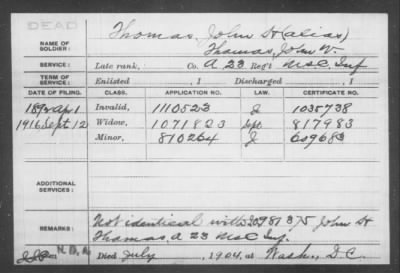 DEAD
Thomas, John H (alias)
NAME OF SOLDIER: Thomas, John W.
SERVICE: Late rank, Co. A 23 Reg't Inf
TERM OF SERVICE: Enlisted , 1 Discharged , 1
DATE OF FILING. CLASS. APPLICATION NO. LAW. CERTIFICATE NO.
1892 Apr 1 Invalid, 1110523 J 1035738
1916 Sept 12 Widow, 1071823 Sept 817983
Minor, 810264 J 609683
ADDITIONAL SERVICES:
REMARKS: Not identical with John H
Thomas, A 23 Inf.
N.D.A. Died July , 1904, at Wash., D.C.